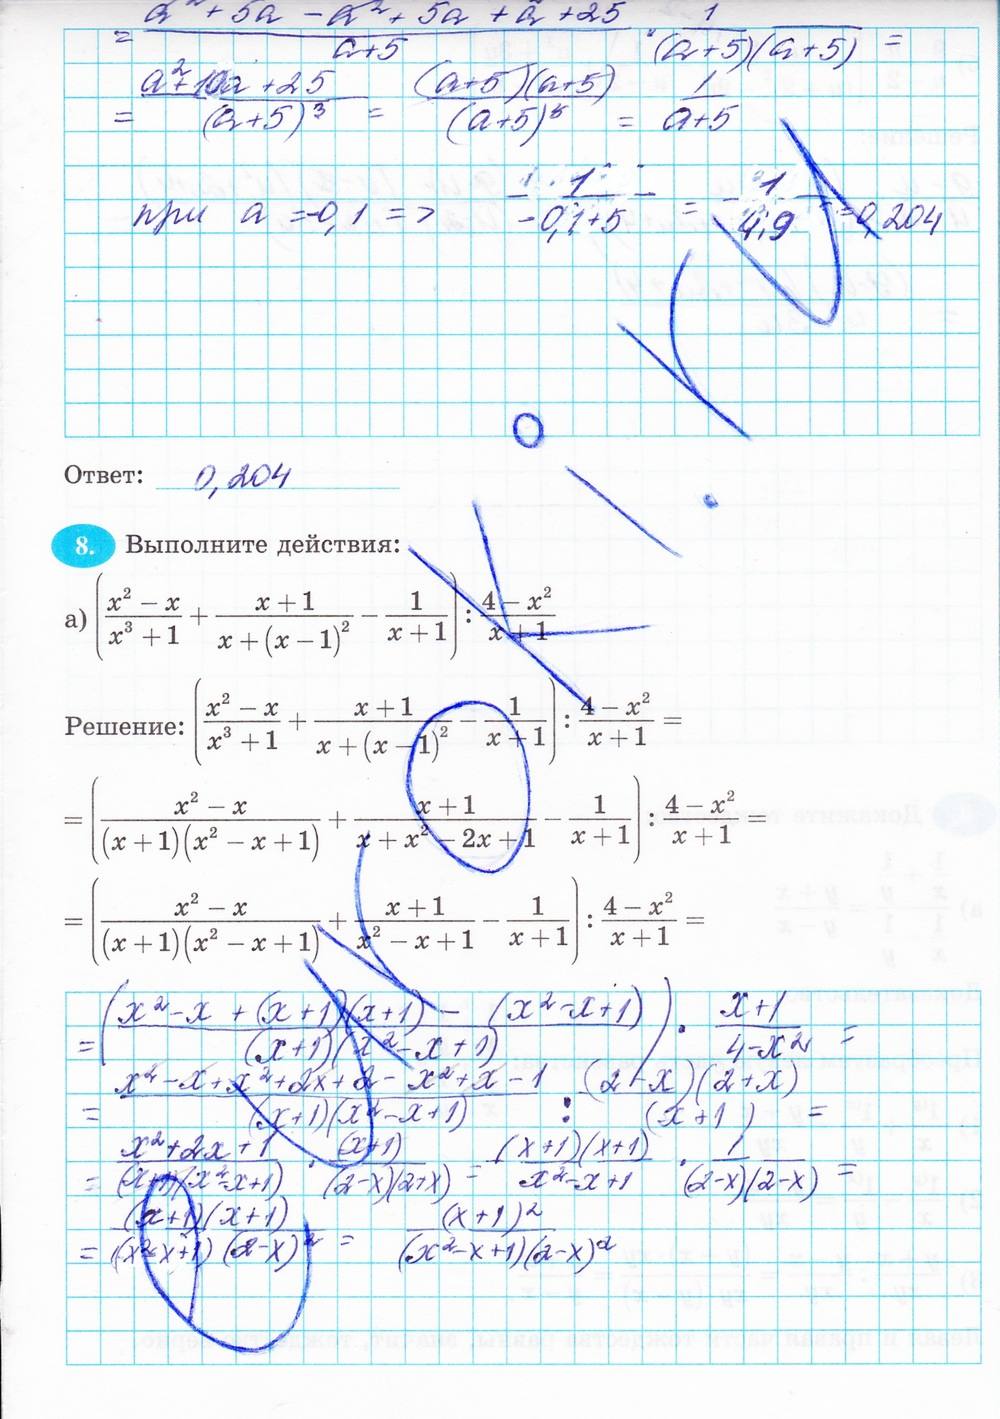 = (a² + 5a - a² + 5a + a² + 25)/(a+5) · 1/((a+5)(a+5)) =
= (a² + 10a + 25)/(a+5)³ = ((a+5)(a+5))/(a+5)³ = 1/(a+5)
при a = -0,1 => 1/(-0,1+5) = 1/4,9 = 0,204
Ответ: 0,204
8. Выполните действия:
а) ((x² - x)/(x³ + 1) + (x + 1)/(x + (x - 1)²) - 1/(x + 1)) : (4 - x²)/(x + 1)
Решение: ((x² - x)/(x³ + 1) + (x + 1)/(x + (x - 1)²) - 1/(x + 1)) : (4 - x²)/(x + 1) =
= ((x² - x)/((x + 1)(x² - x + 1)) + (x + 1)/(x + x² - 2x + 1) - 1/(x + 1)) : (4 - x²)/(x + 1) =
= ((x² - x)/((x + 1)(x² - x + 1)) + (x + 1)/(x² - x + 1) - 1/(x + 1)) : (4 - x²)/(x + 1) =
= ((x² - x + (x + 1)(x+1) - (x² - x + 1))/((x+1)(x² - x + 1))) · (x+1)/(4-x²) =
= (x² - x + x² + 2x + 2 - x² + x - 1)/((x+1)(x² - x + 1)) : ((2-x)(2+x))/(x+1) =
= (x² + 2x + 1)/((x+1)(x² - x + 1)) · (x+1)/((2-x)(2+x)) = ((x+1)(x+1))/(x² - x + 1) · 1/((2-x)(2-x)) =
= ((x+1)(x+1))/((x² - x + 1)(2-x)²) = (x+1)²/((x² - x + 1)(2-x)²)
yroki.ru